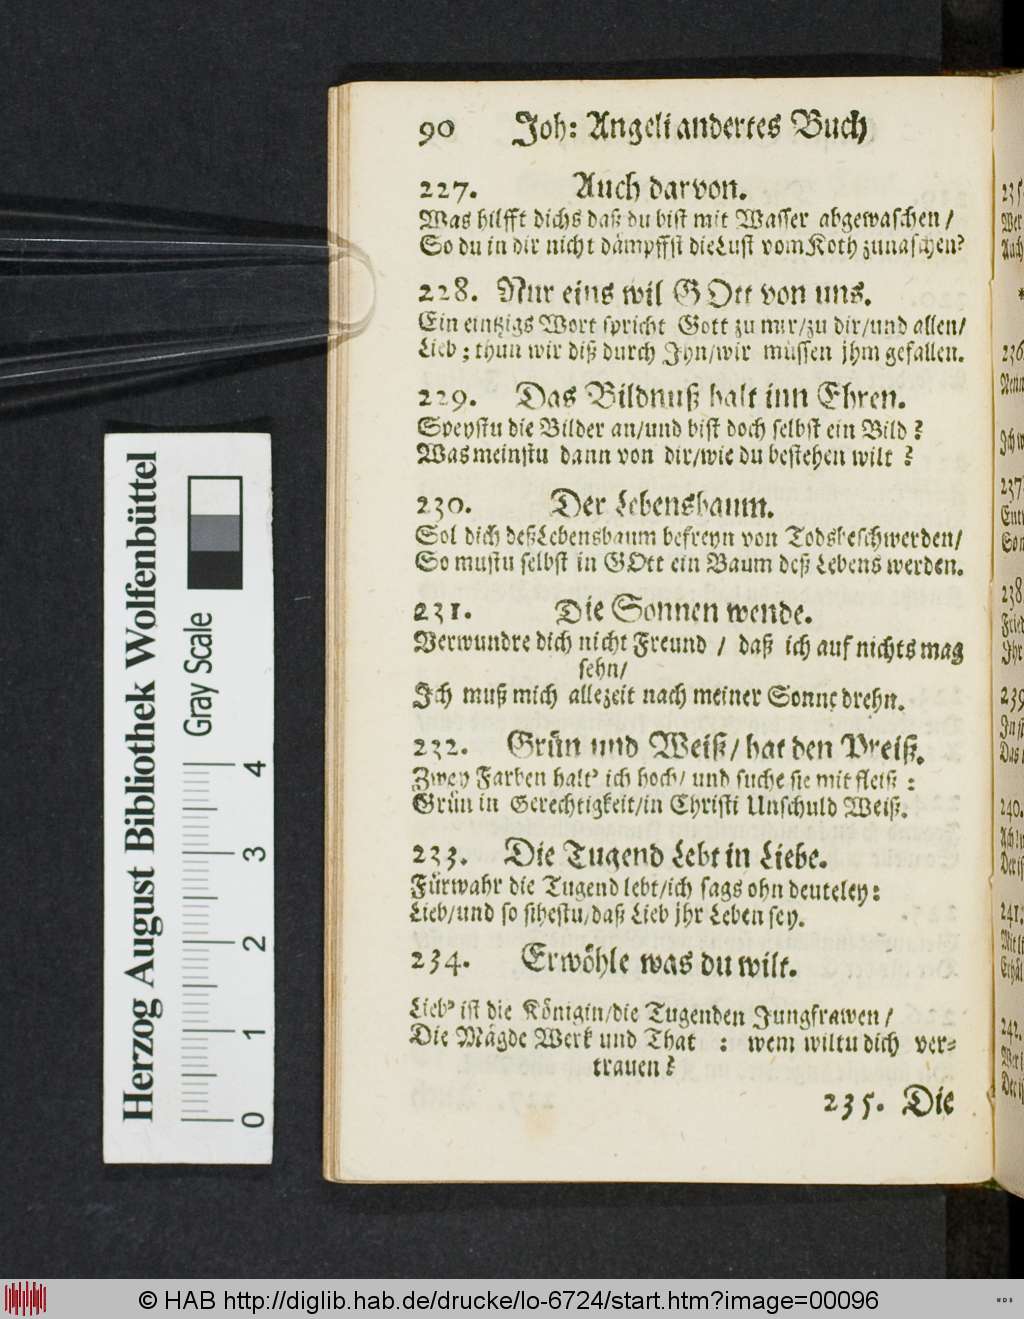 90 Joh: Angeli andertes Buch
227. Auch darvon.
Was hilfft dichs daß du bist mit Wasser abgewaschen /
So du in dir nicht dämpffst die Lust vom Koth zunaschen?
228. Nur eins wil GOtt von uns.
Ein eintzigs Wort spricht Gott zu mir/zu dir/und allen/
Lieb; thun wir diß durch Jhn/wir müssen jhm gefallen.
229. Das Bildnuß halt inn Ehren.
Speystu die Bilder an/und bist doch selbst ein Bild?
Was meinstu dann von dir/wie du bestehen wilt?
230. Der Lebensbaum.
Sol dich deß Lebensbaum befreyn von Todsbeschwerden/
So mustu selbst in GOtt ein Baum deß Lebens werden.
231. Die Sonnen wende.
Verwundre dich nicht Freund / daß ich auf nichts mag
sehn/
Jch muß mich allezeit nach meiner Sonne drehn.
232. Grün und Weiß/ hat den Preiß.
Zwey Farben halt' ich hoch/ und suche sie mit fleiß:
Grün in Gerechtigkeit/in Christi Unschuld Weiß.
233. Die Tugend Lebt in Liebe.
Fürwahr die Tugend lebt/ich sags ohn deuteley:
Lieb/und so sihestu/daß Lieb jhr Leben sey.
234. Erwöhle was du wilt.
Lieb' ist die Königin/die Tugenden Jungfrawen /
Die Mägde Werk und That : wem wiltu dich ver-
trauen?
235. Die
Herzog August Bibliothek Wolfenbüttel
Gray Scale
0 1 2 3 4
© HAB http://diglib.hab.de/drucke/lo-6724/start.htm?image=00096